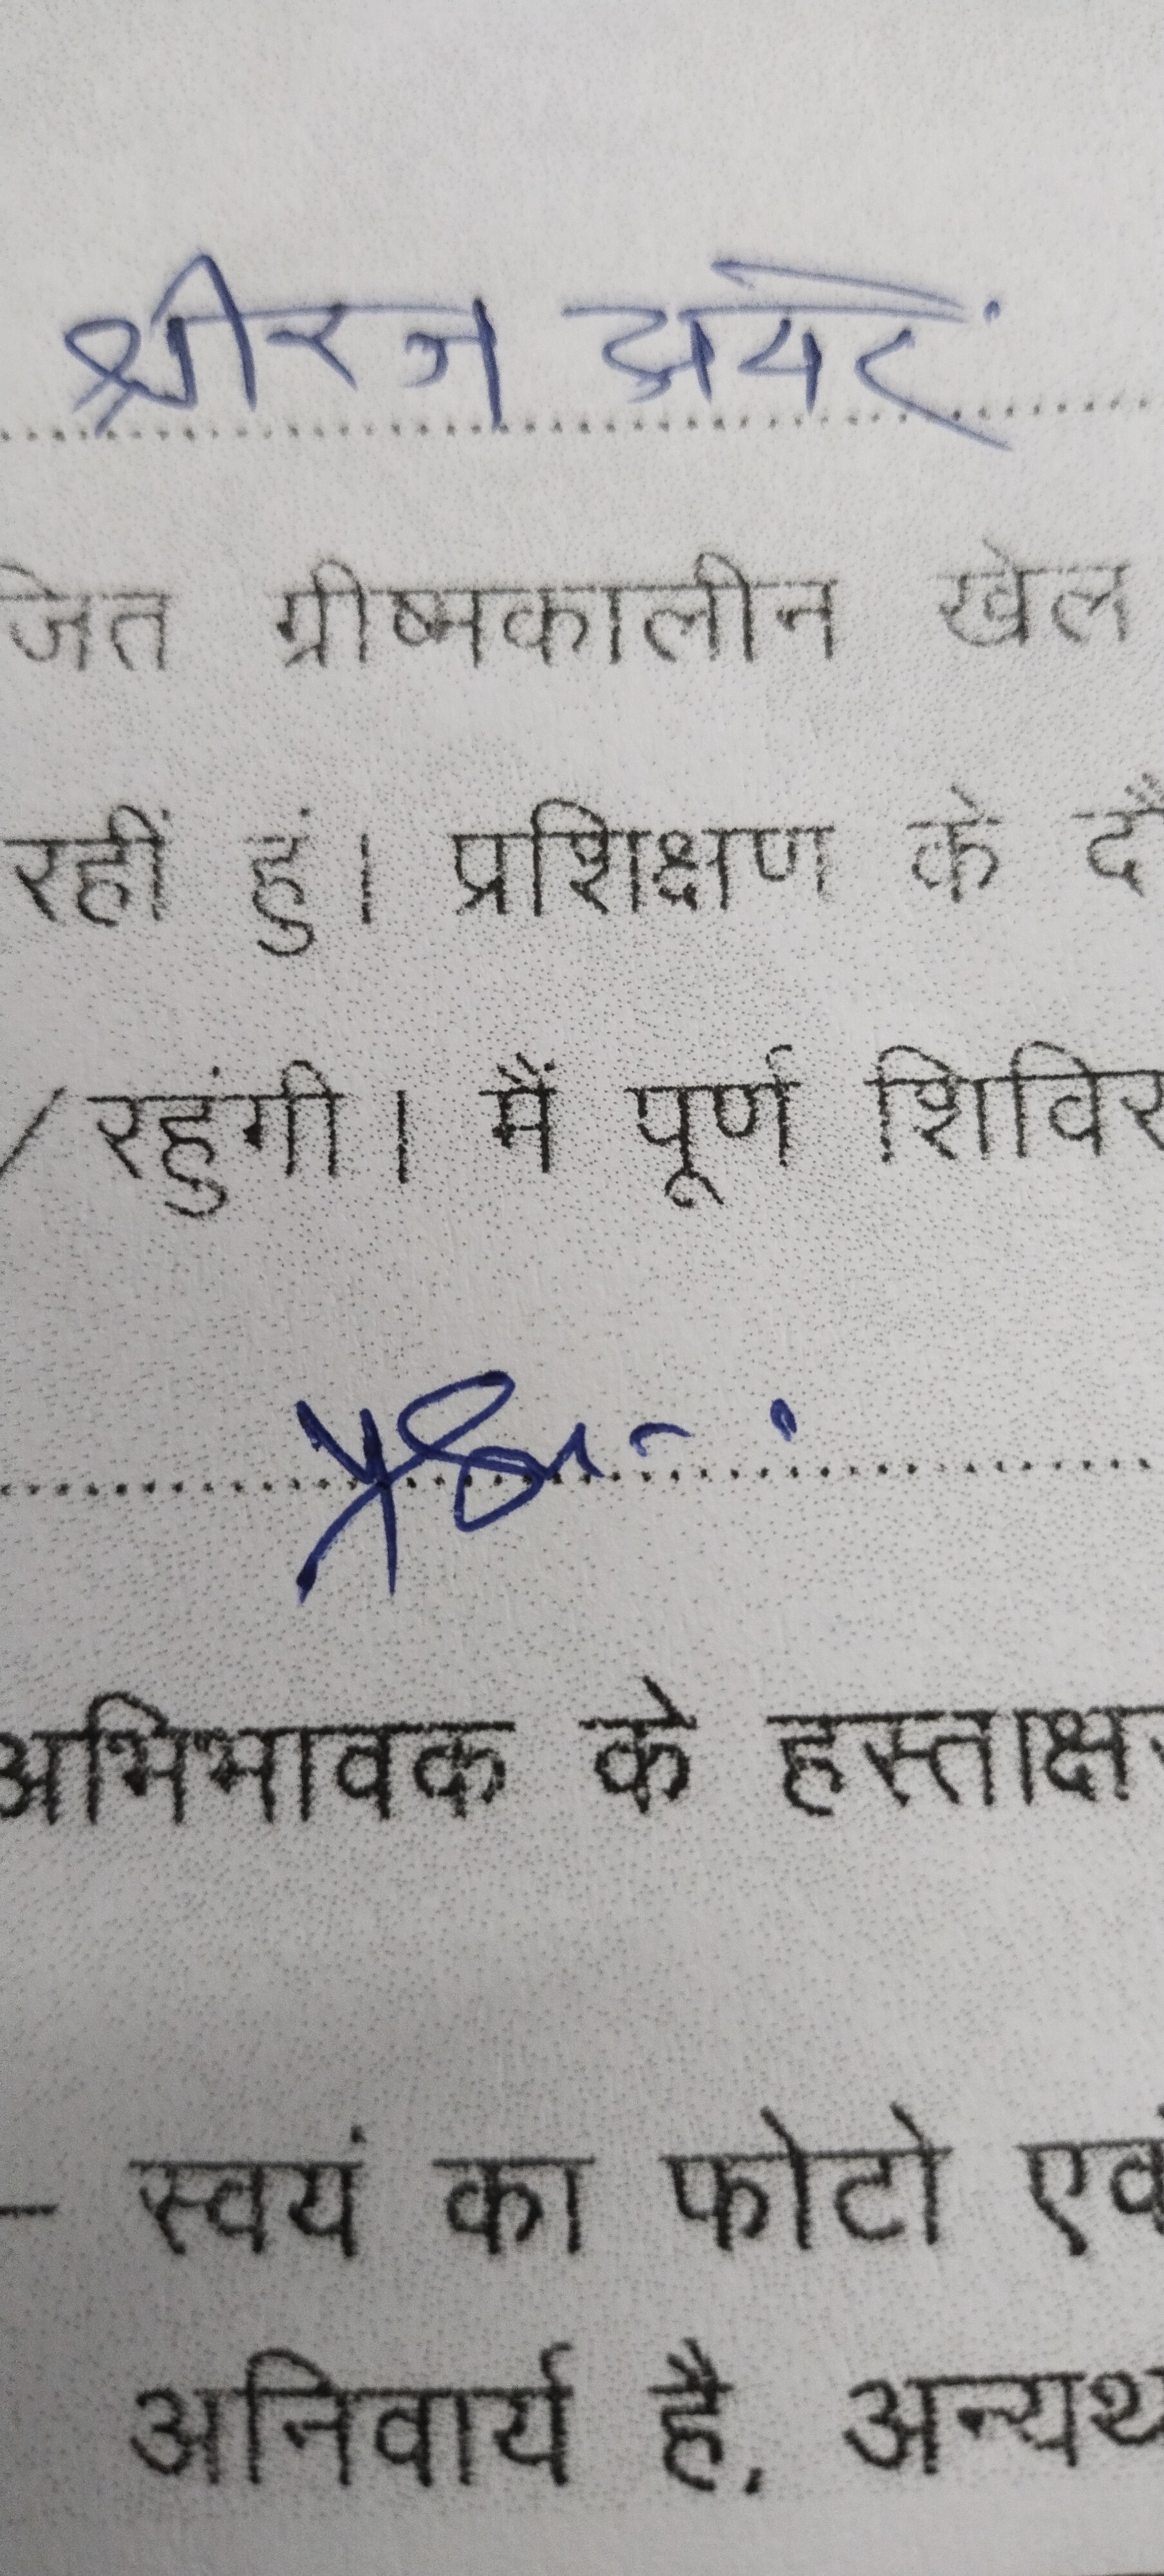 श्रीरज
जित ग्रीष्मकालीन खेल
रहीं हुं। प्रशिक्षण के दौ
/ रहुंगी। मैं पूर्ण शिविर
अभिभावक के हस्ताक्षर
– स्वयं का फोटो एवं
अनिवार्य है, अन्यथ